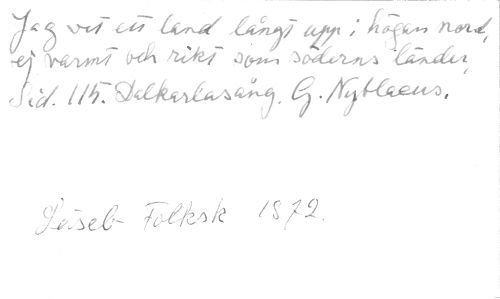 Jag vet ett land långt upp i högan nord,
ej varmt och rikt som söderns länder,
Sid. 115. Dalkarlasång. G. Nyblaeus.
Läseb Folksk 1872.